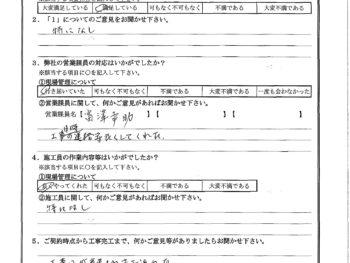 大変満足している　満足している　可もなく不可もなく　不満である　大変不満である
２．「１」についてのご意見をお聞かせ下さい。
特になし
３．弊社の営業課員の対応はいかがでしたか？
※該当する項目に○を記入して下さい。
①現場管理について
行き届いていた　可もなく不可もなく　不満である　大変不満である　一度も会わなかった
②営業課員に関して、何かご意見があればお聞かせ下さい。
営業課員名【　】【　】
工事の連絡等よくしてくれた。
４．施工員の作業内容等はいかがでしたか？
※該当する項目に○を記入して下さい。
①現場管理について
良くやってくれた　可もなく不可もなく　不満である　大変不満である
②施工員に関して、何かご意見があればお聞かせ下さい。
特になし
５．ご契約時点から工事完工まで、何かご意見等がありましたらお聞かせ下さい。